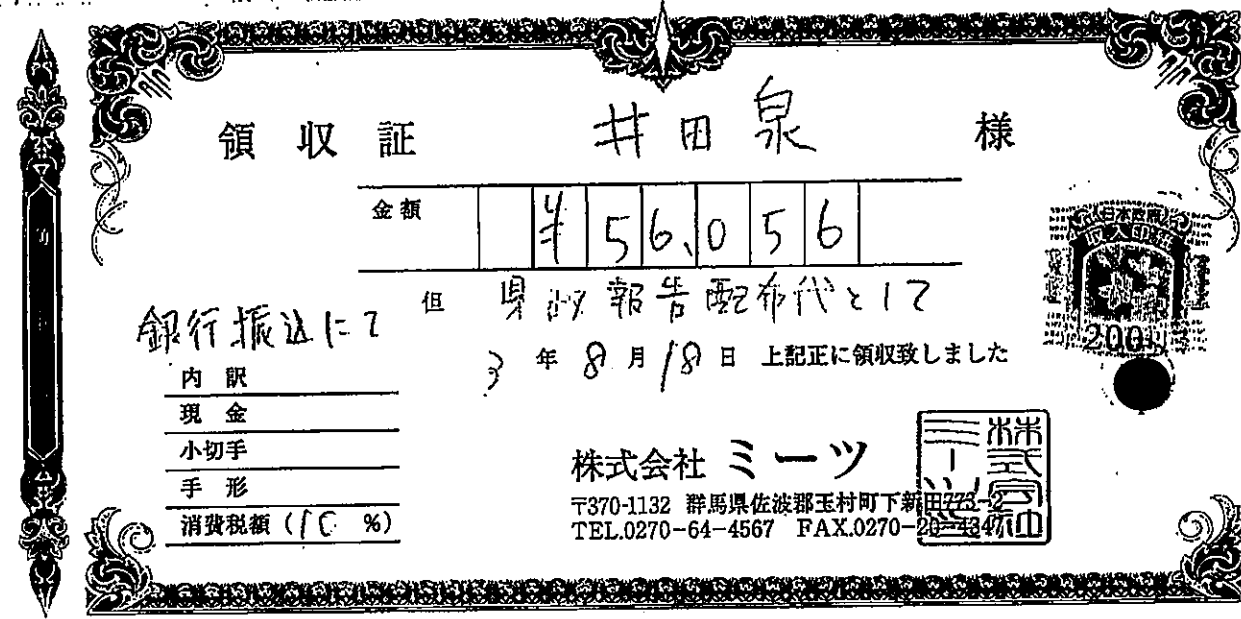 領収証 井田泉 様
金額 ¥56,056
但 県政報告配布代として
銀行振込にて
3年8月18日 上記正に領収致しました
内訳
現金
小切手
手形
消費税額(10%)
日本政府
収入印紙
200円
株式会社 ミーツ
〒370-1132 群馬県佐波郡玉村町下新田773-2
TEL.0270-64-4567 FAX.0270-20-4347